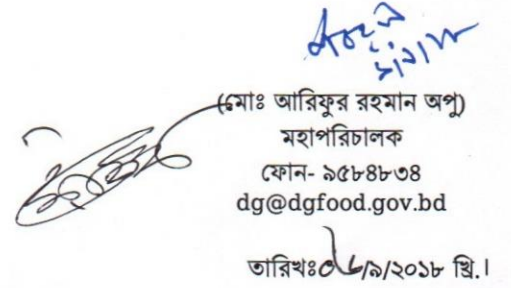 (মোঃ আরিফুর রহমান অপু)
মহাপরিচালক
ফোন- ৯৫৮৪৮৩৪
dg@dgfood.gov.bd
তারিখঃ০৬/৯/২০১৮ খ্রি.।